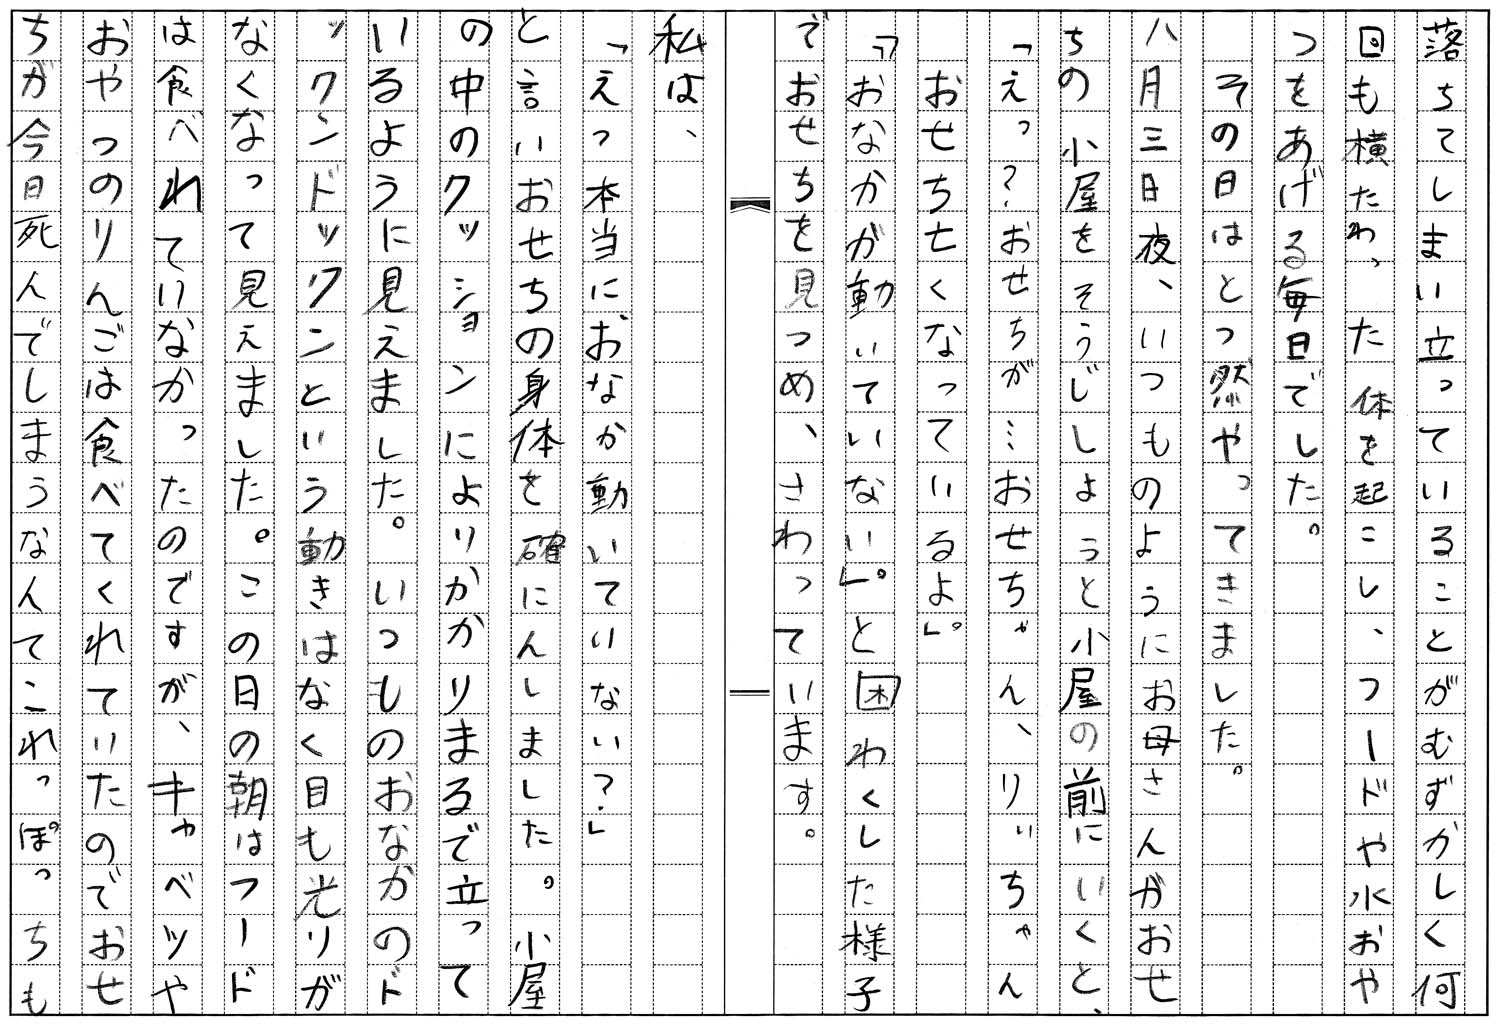 落ちてしまい立っていることがむずかしく何
回も横たわった休を起こし、フードや水おや
つをあげる毎日でした。
その日はとつ然やってきました。
八月三日夜、いつものようにお母さんがおせ
ちの小屋をそうじしようと小屋の前にいくと、
「えっ?おせちが…おせちゃん、りぃちゃん
おせち亡くなっているよ」。
「おなかが動いていない」。と困わくした様子
でおせちを見つめ、さわっています。
私は、
「えっ本当におなか動いていない?」
と言いおせちの身体を確にんしました。小屋
の中のクッションによりかかりまるで立って
いるように見えました。いつものおなかのド
ックンドックンという動きはなく目も光りが
なくなって見えました。この日の朝はフード
は食べれていなかったのですが、キャベツや
おやつのりんごは食べてくれていたのでおせ
ちが今日死んでしまうなんてこれっぽっちも